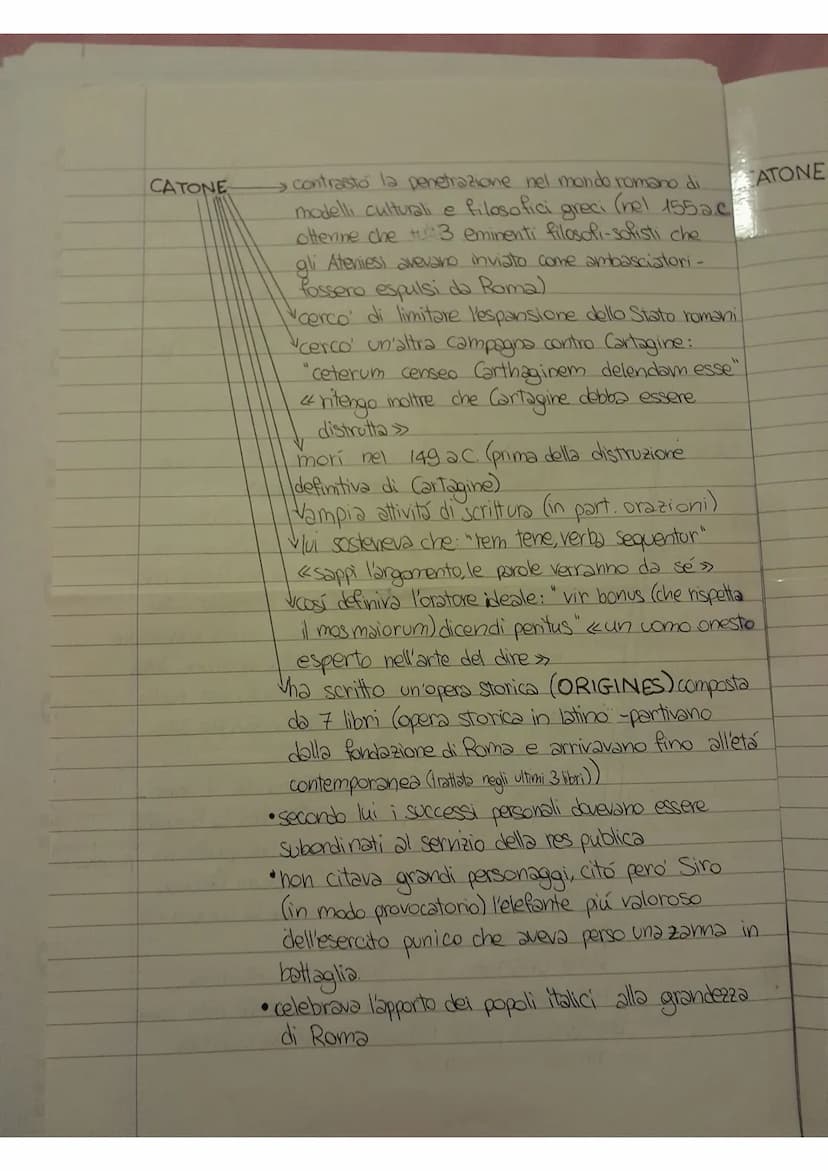 CATONE → contrastò la penetrazione nel mondo romano di
modelli culturali e filosofici greci (nel 155 a.C.
ottenne che 3 eminenti filosofi-sofisti che
gli Ateniesi avevano inviato come ambasciatori -
fossero espulsi da Roma)
cercò di limitare l'espansione dello Stato romani
cercò un'altra campagna contro Cartagine:
"ceterum censeo Carthaginem delendam esse"
«ritengo inoltre che Cartagine debba essere
distrutta»
morì nel 149 a.C. (prima della distruzione
definitiva di Cartagine)
ampia attività di scrittura (in part. orazioni)
lui sosteneva che: "rem tene, verba sequentur"
«sappi l'argomento, le parole verranno da sé»
così definiva l'oratore ideale: "vir bonus (che rispetta
il mos maiorum) dicendi peritus" «un uomo onesto
esperto nell'arte del dire»
ha scritto un'opera storica (ORIGINES) composta
da 7 libri (opera storica in latino - partivano
dalla fondazione di Roma e arrivavano fino all'età
contemporanea (trattata negli ultimi 3 libri))
• secondo lui i successi personali dovevano essere
subordinati al servizio della res publica
• non citava grandi personaggi, citò però Siro
(in modo provocatorio) l'elefante più valoroso
dell'esercito punico che aveva perso una zanna in
battaglia.
• celebrava l'apporto dei popoli italici alla grandezza
di Roma
ATONE